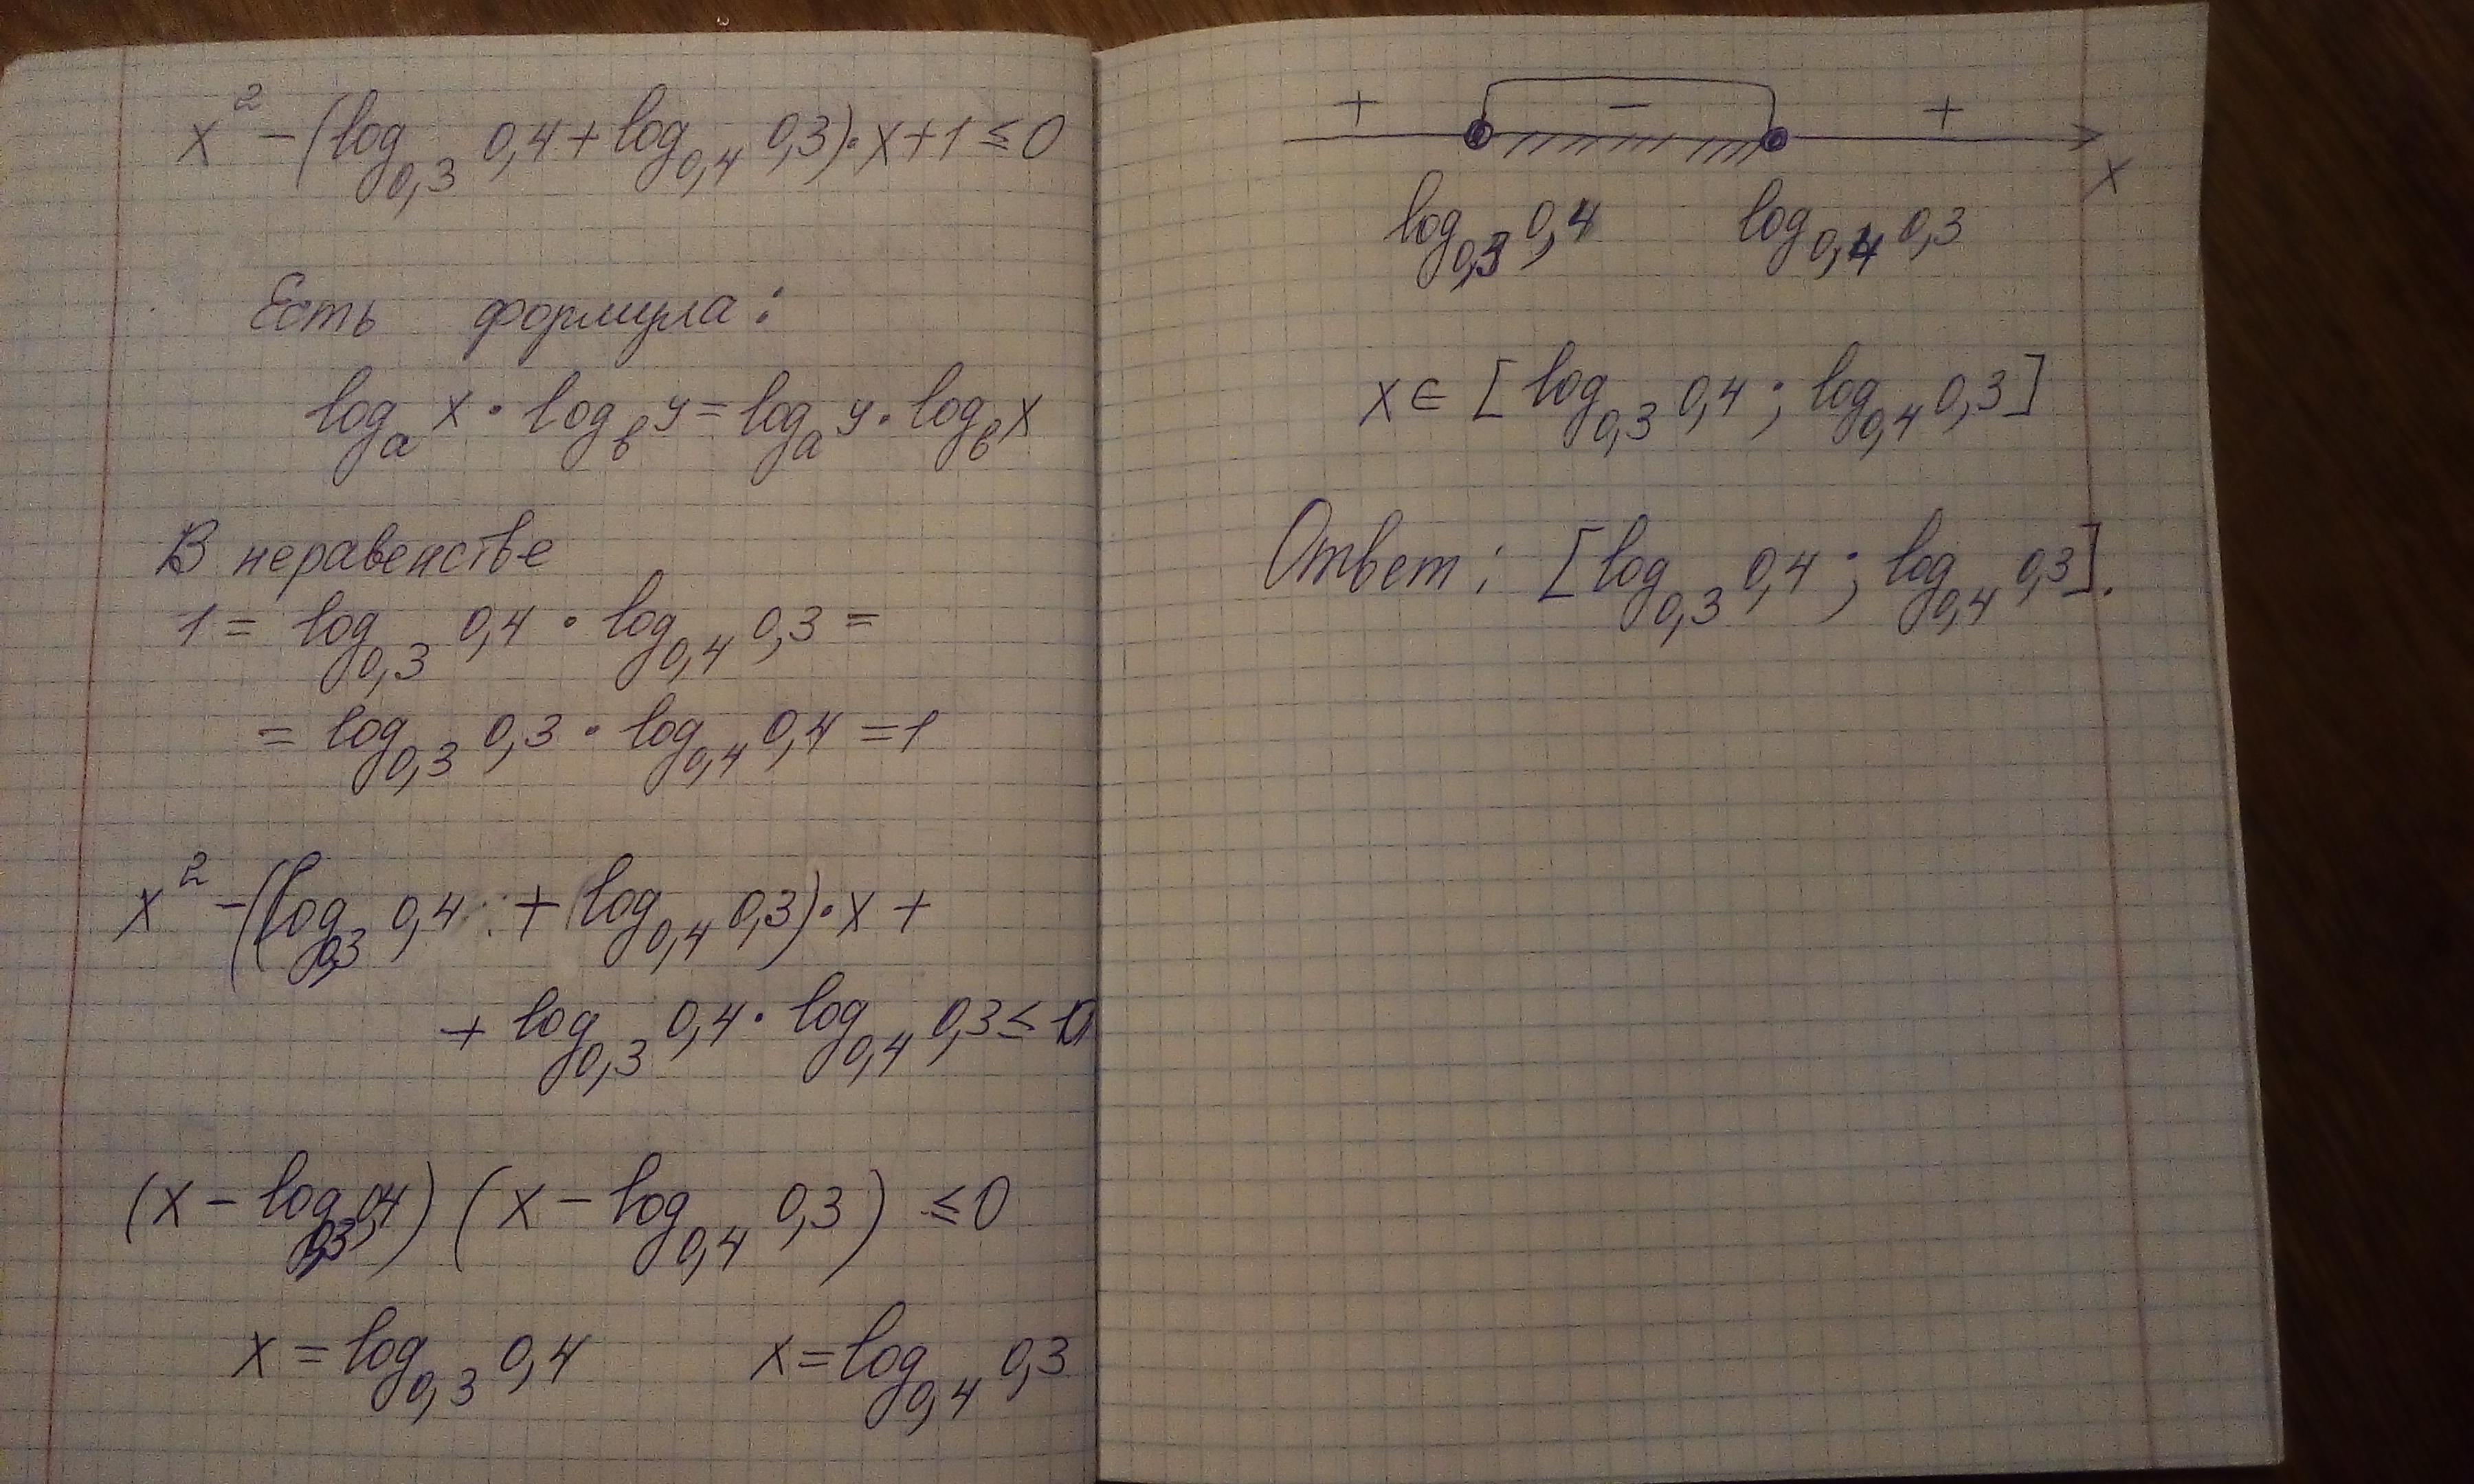 x² − (log₀,₃ 0,4 + log₀,₄ 0,3)·x + 1 ≤ 0
Есть формула:
logₐ x · log_в y = logₐ y · log_в x
В неравенстве
1 = log₀,₃ 0,4 · log₀,₄ 0,3 =
= log₀,₃ 0,3 · log₀,₄ 0,4 = 1
x² − (log₀,₃ 0,4 + log₀,₄ 0,3)·x +
+ log₀,₃ 0,4 · log₀,₄ 0,3 ≤ 0
(x − log₀,₃ 0,4) (x − log₀,₄ 0,3) ≤ 0
x = log₀,₃ 0,4 x = log₀,₄ 0,3
+ − +
x
log₀,₃ 0,4 log₀,₄ 0,3
x ∈ [log₀,₃ 0,4 ; log₀,₄ 0,3]
Ответ: [log₀,₃ 0,4 ; log₀,₄ 0,3].